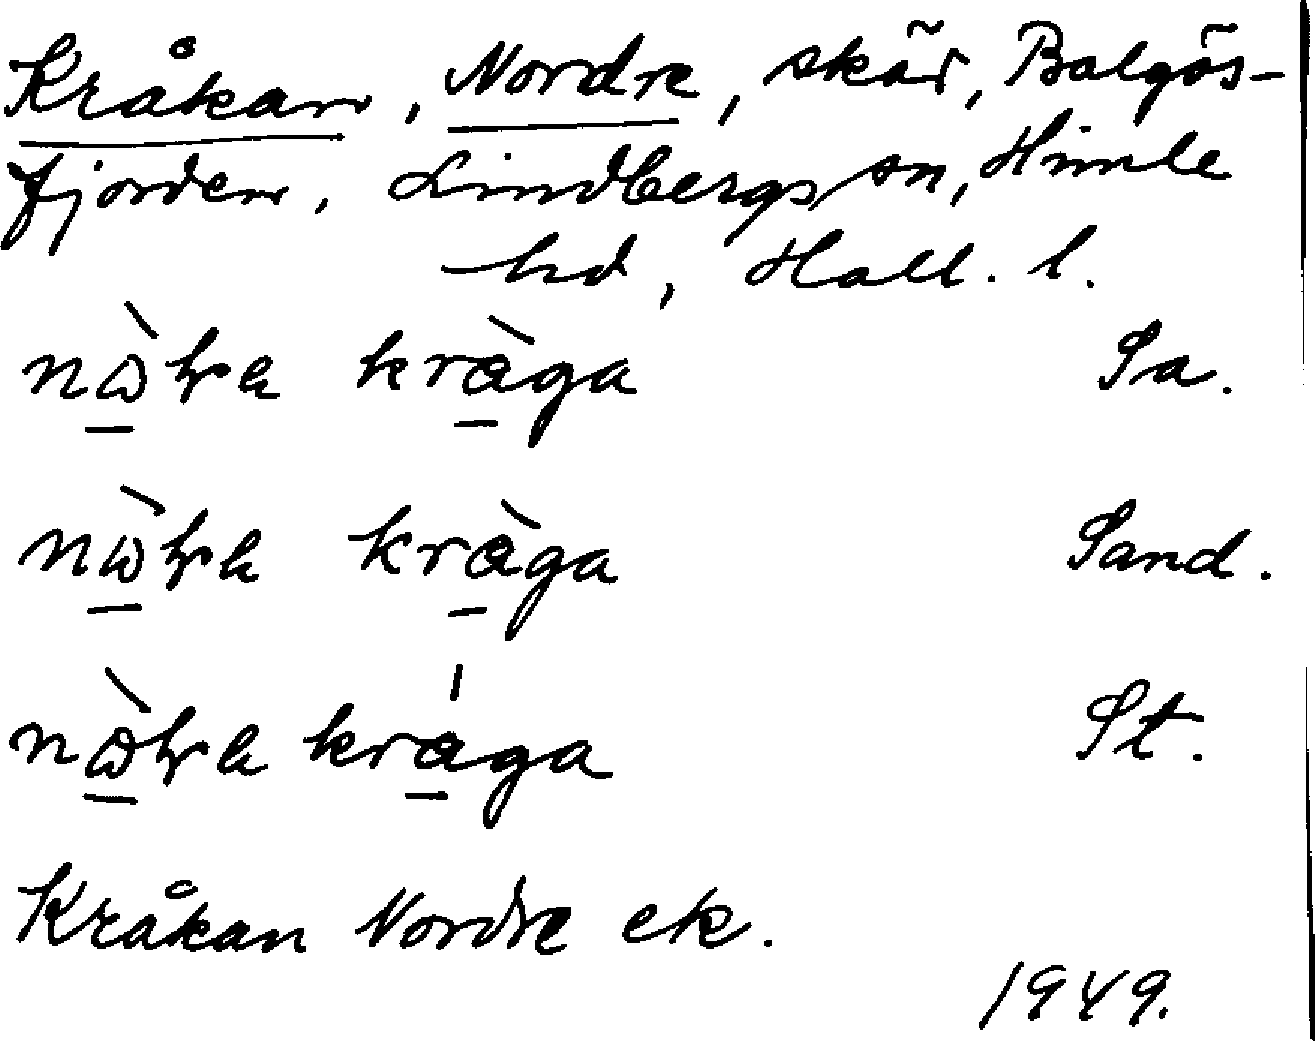 Kråkan, Nordre, skär, Balgös-
fjorden, Lindbergs sn, Himle
hd, Hall. l.
kråga Sa.
kråga Sand.
kråga St.
Kråkan Nordre ek.
1949.